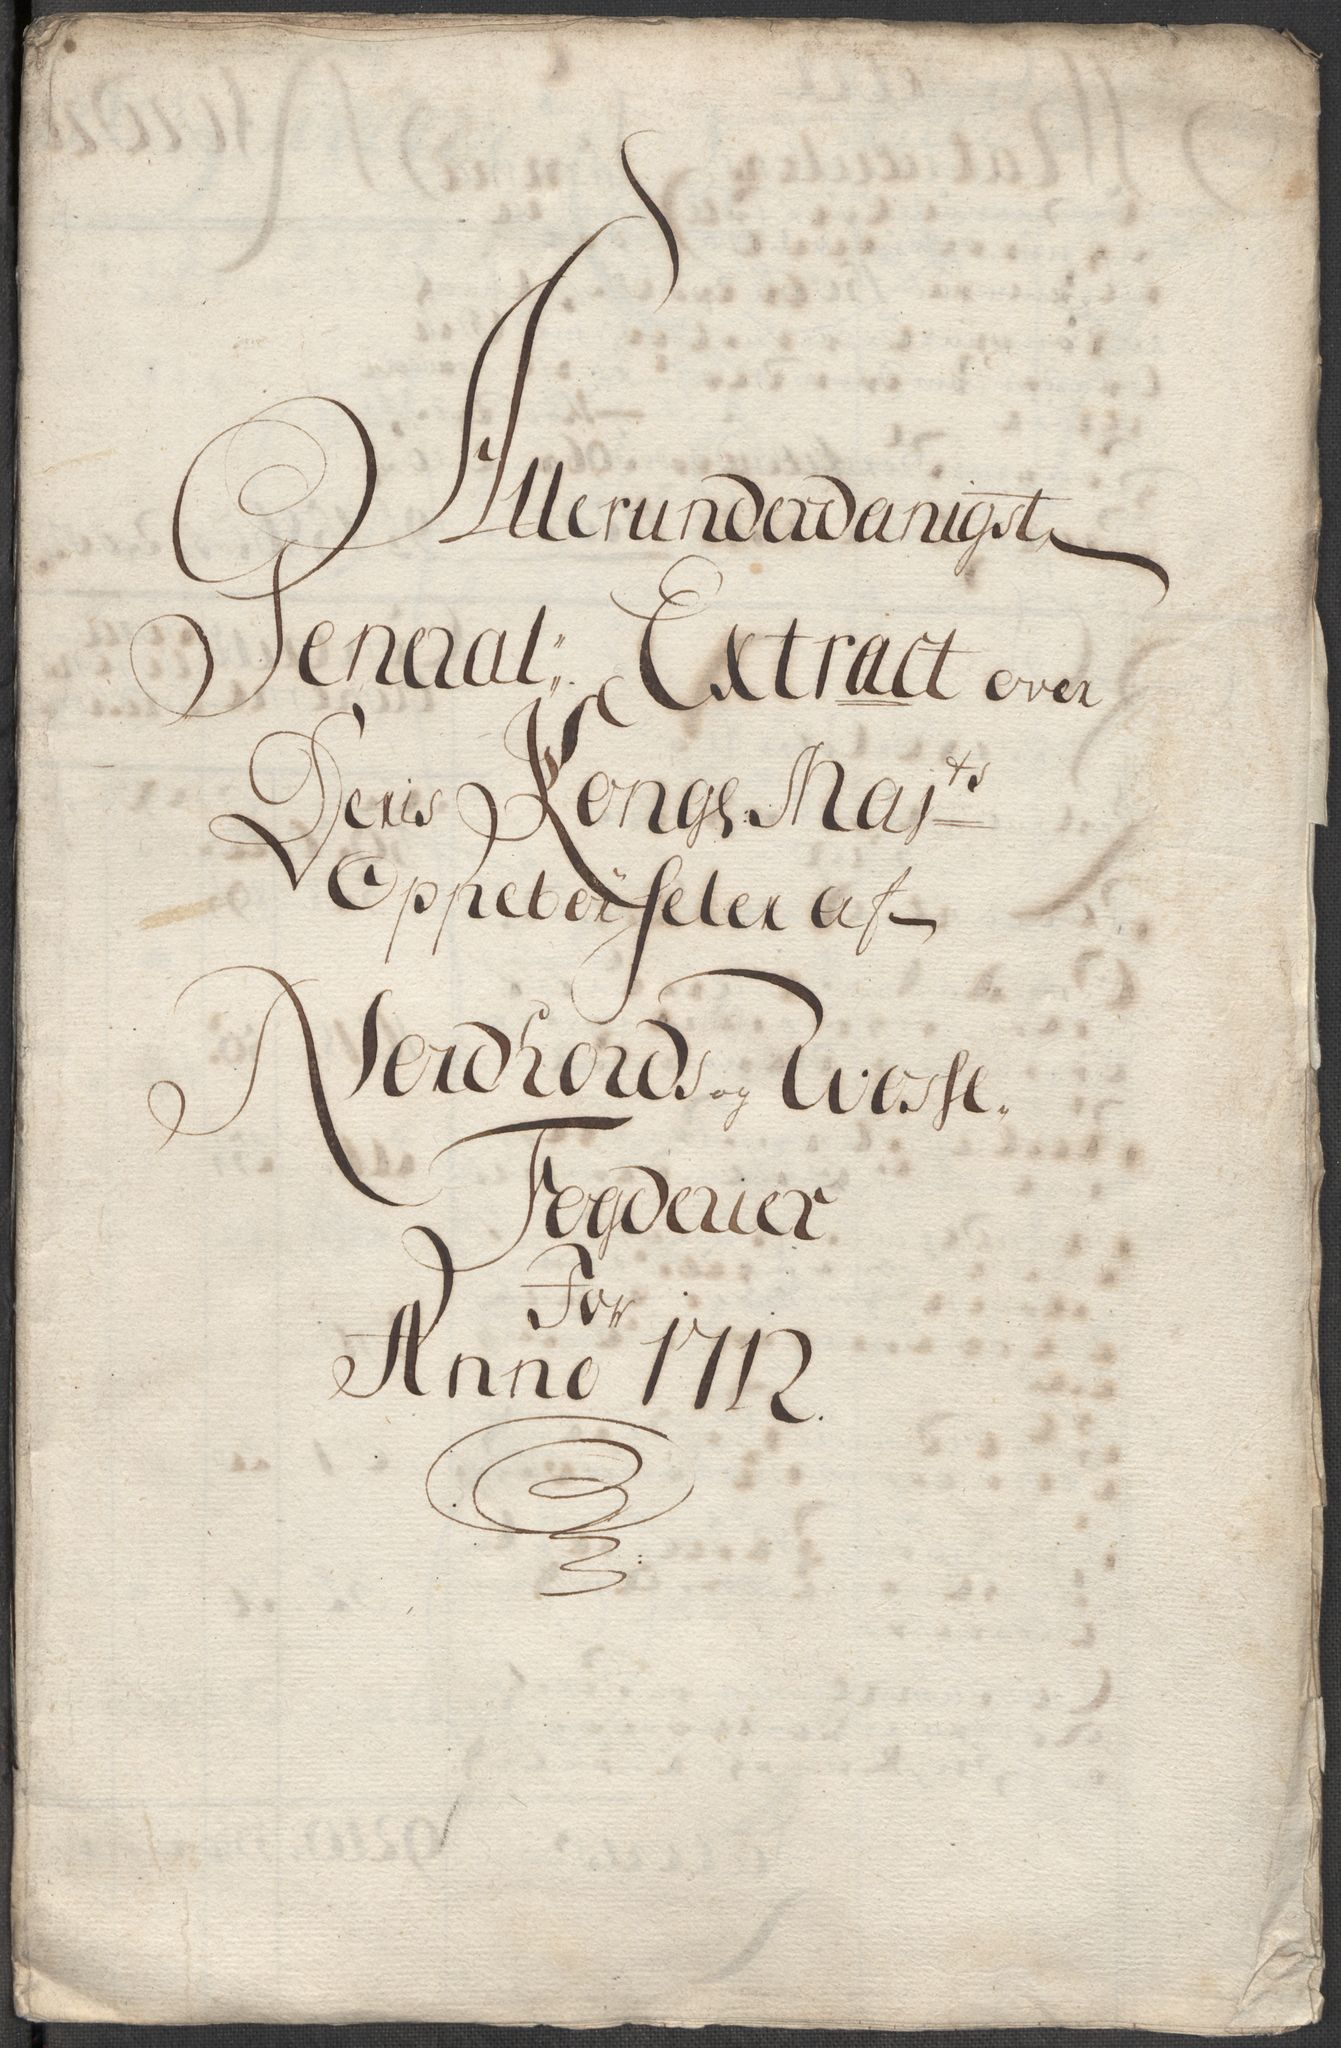 Allerunderdanigst
General: Extract over
Deris Kongl: Maj:ts
Oppebörseler af
Nordhords og Wosse
Fogderier
For
Anno 1712.